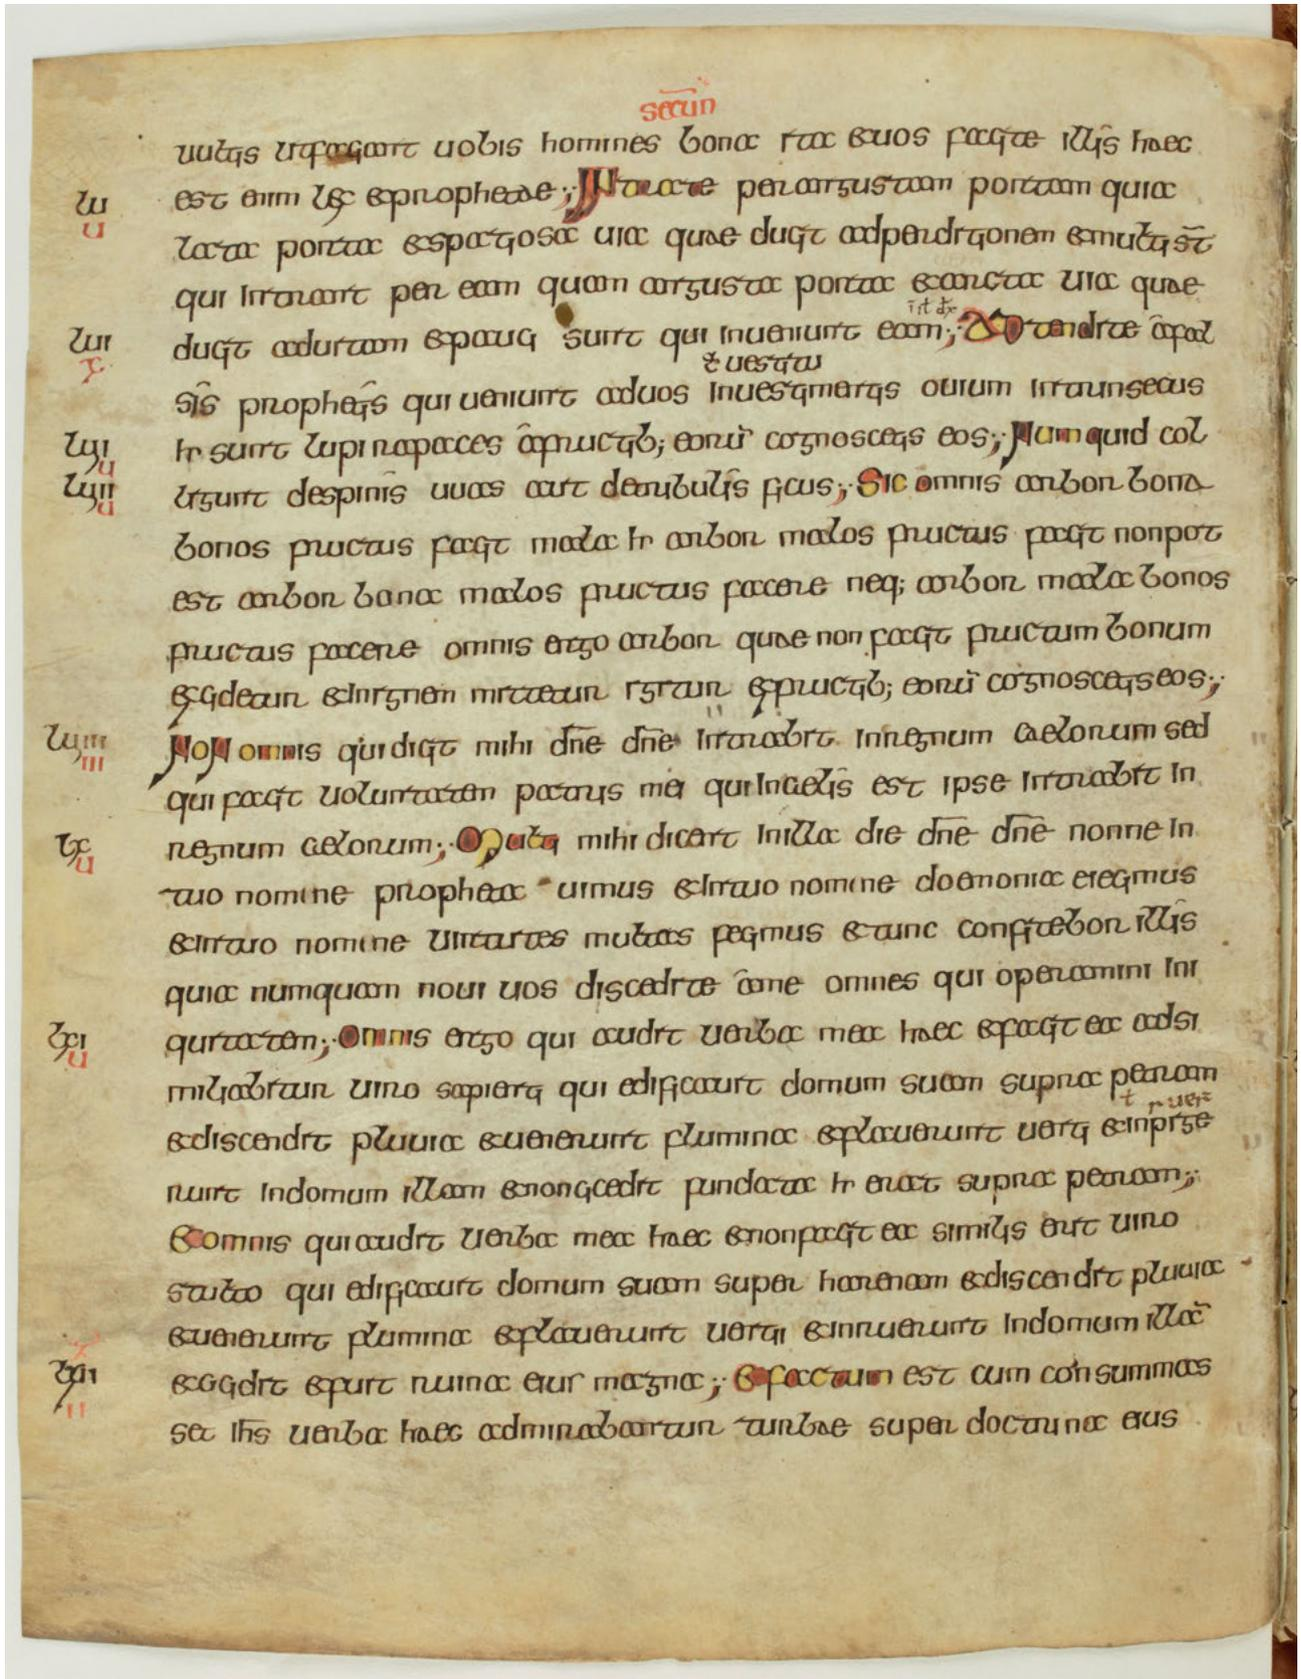 secun
uultis ut faciant uobis homines bona ita et uos facite illis haec
lu
u
est enim lex et prophetae ;· INtrate per angustam portam quia
lata porta et spatiosa uia quae ducit ad perditionem et multi st̄
qui intrant per eam quam angusta porta et ancta uia quae
lui
x
ducit ad uitam et pauci sunt qui inueniunt eam ;· ADtendite a fal
ł uestitu
sis prophetis qui ueniunt ad uos in uestimentis ouium intrinsecus
lyi
u
hr sunt lupi rapaces a fructib; eorū cognoscetis eos ;· Numquid col
lyii
u
ligunt de spinis uuas aut de tribulis ficus ;· Sic omnis arbor bona
bonos fructus facit mala hr arbor malos fructus facit non pot
est arbor bona malos fructus facere neq; arbor mala bonos
fructus facere omnis ergo arbor quae non facit fructum bonum
excidetur et in ignem mittetur igitur ex fructib; eorū cognoscetis eos ;·
luiiii
iii
NoN omnis qui dicit mihi dn̄e dn̄e intrabit in regnum caelorum sed
qui facit uoluntatem patris mei qui in celis est ipse intrabit in
lx
u
regnum celorum ;· Multi mihi dicent in illa die dn̄e dn̄e nonne in
tuo nomine propheta uimus et in tuo nomine demonia eiecimus
et in tuo nomine uirtutes multas fecimus et tunc confitebor illis
quia numquam noui uos discedite a me omnes qui operamini ini
lxi
u
quitatem ;· Omnis ergo qui audit uerba mea haec et facit ea adsi
milabitur uiro sapienti qui edificauit domum suam supra petram
et discendit pluuia et uenerunt flumina et flauerunt uenti et in prige
runt in domum illam et non cicedit fundata hr erat supra petram ;·
Et omnis qui audit uerba mea haec et non facit ea similis erit uiro
stulto qui edificauit domum suam super harenam et discendit pluuia
et uenerunt flumina et flauerunt uentii et inruerunt in domum illā
lxii
ii
et cicidit et fuit ruina eius magna ;· Et factum est cum consummas
set ihs̄ uerba haec adminabantur turbae super doctrina eius